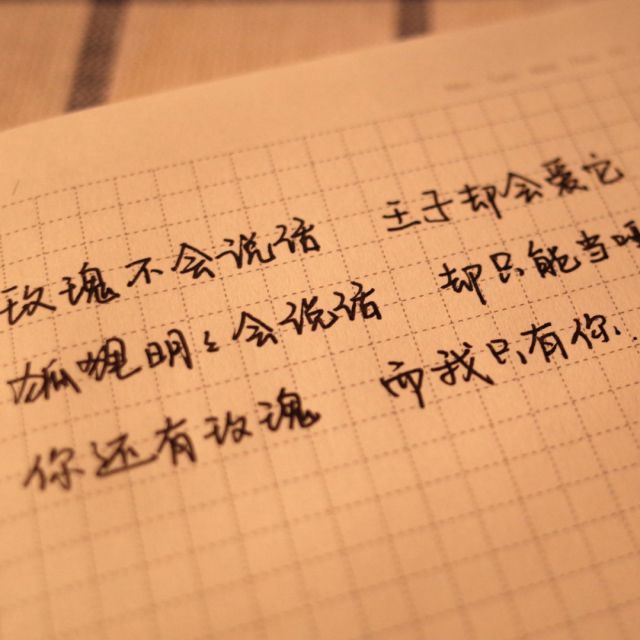 玫瑰不会说话 王子却会爱它
狐狸明々会说话 却只能当
你还有玫瑰 而我只有你.